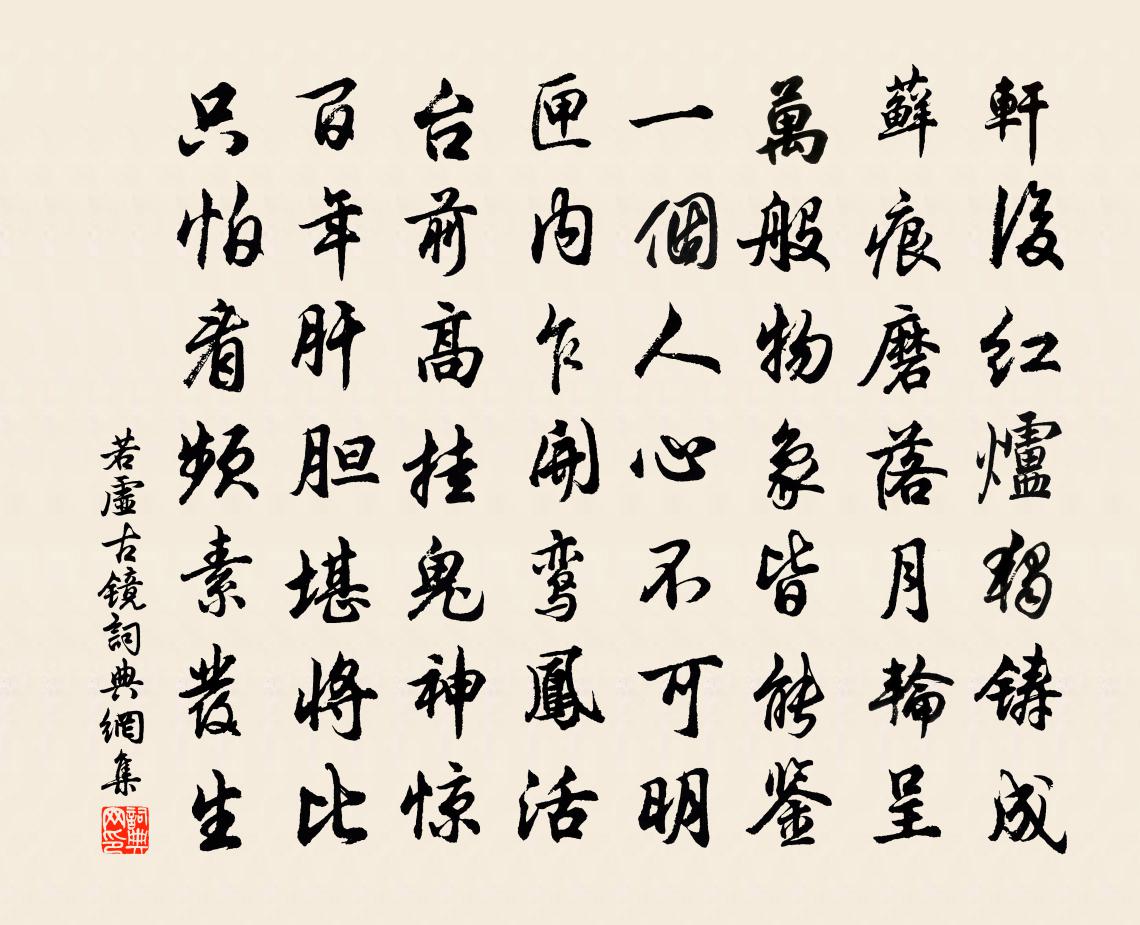 軒後红爐獨鑄成
蘚痕磨落月輪呈
萬般物象皆能鉴
一個人心不可明
匣内乍開鸾鳳活
台前高挂鬼神惊
百年肝胆堪將比
只怕看频素發生
若虛古镜詞典網集
詞典网印